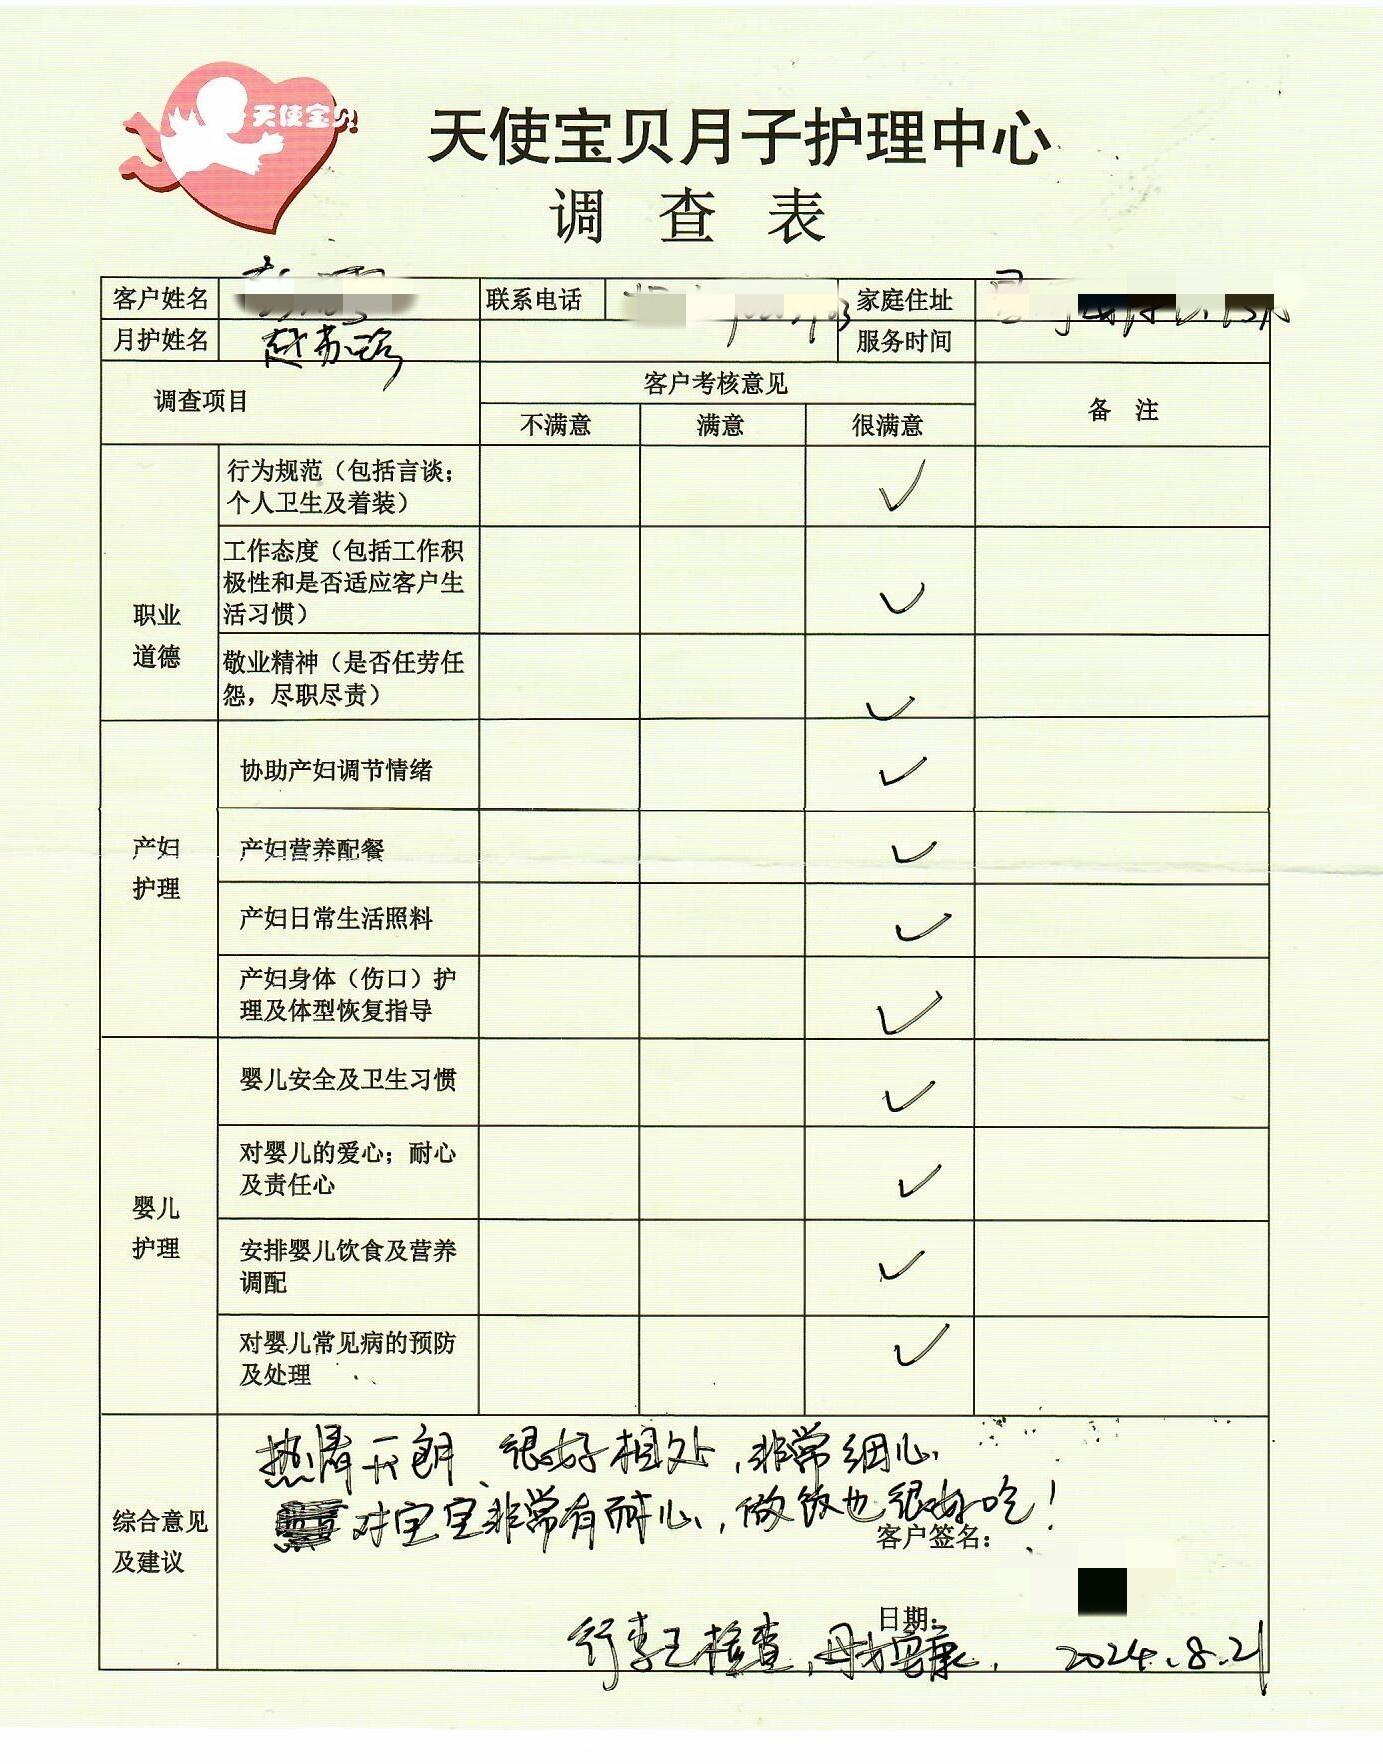 天使宝贝
天使宝贝月子护理中心
调查表
客户姓名 联系电话 家庭住址
月护姓名 赵苏路 服务时间
调查项目 客户考核意见 备注
不满意 满意 很满意
职业道德
行为规范（包括言谈；
个人卫生及着装）
✓
工作态度（包括工作积
极性和是否适应客户生
活习惯）
✓
敬业精神（是否任劳任
怨，尽职尽责）
✓
产妇护理
协助产妇调节情绪 ✓
产妇营养配餐 ✓
产妇日常生活照料 ✓
产妇身体（伤口）护
理及体型恢复指导
✓
婴儿护理
婴儿安全及卫生习惯 ✓
对婴儿的爱心；耐心
及责任心
✓
安排婴儿饮食及营养
调配
✓
对婴儿常见病的预防
及处理
✓
综合意见
及建议
热情开朗、很好相处，非常细心，
对宝宝非常有耐心，做饭也很好吃！
客户签名：
日期：
行李已检查，母婴安康， 2024.8.21